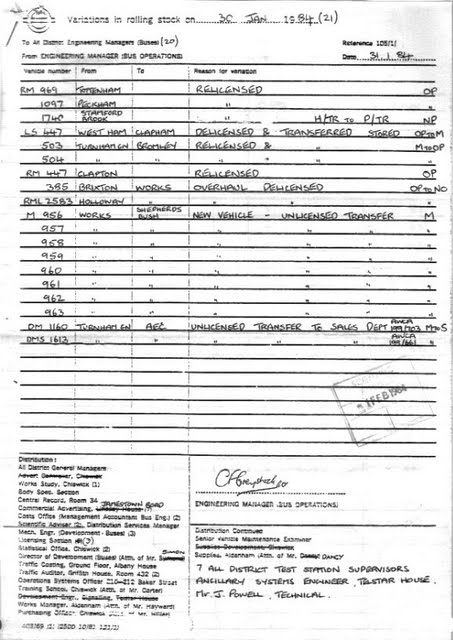 Variations in rolling stock on 30 JAN 1984 (21)
To All District Engineering Managers (Buses) (20) Reference 105/1/
From ENGINEERING MANAGER (BUS OPERATIONS) Date 31.1.84
Vehicle number From To Reason for variation
RM 969 TOTTENHAM RELICENSED OP
1097 PECKHAM " "
1740 STAMFORD BROOK H/TR TO P/TR NP
LS 447 WEST HAM CLAPHAM DELICENSED & TRANSFERRED STORED OP TO M
503 TURNHAM GN BROMLEY RELICENSED & " M TO OP
504 " " " " "
RM 447 CLAPTON RELICENSED OP
385 BRIXTON WORKS OVERHAUL DELICENSED OP TO NO
RML 2583 HOLLOWAY " " " "
M 956 WORKS SHEPHERDS BUSH NEW VEHICLE - UNLICENSED TRANSFER M
957 " " " " "
958 " " " " "
959 " " " " "
960 " " " " "
961 " " " " "
962 " " " " "
963 " " " " "
DM 1160 TURNHAM GN AEC UNLICENSED TRANSFER TO SALES DEPT AWCA 199/703 M TO S
DMS 1613 " " " " " AWCA 199/661 "
FEB 1984
ENGINEERING MANAGER (BUS OPERATIONS)
Distribution:
All District General Managers
Advert Contractor, Chiswick
Works Study, Chiswick (1)
Body Spec. Section
Central Record, Room 34 JAMESTOWN ROAD
Commercial Advertising,
Costs Office (Management Accountant Bus Eng.) (2)
Scientific Adviser (2), Distribution Services Manager
Mech. Engr. (Development - Buses) (3)
Licensing Section
Statistical Office, Chiswick (2)
Director of Development (Buses) (Attn. of Mr. SIMON
Traffic Costing, Ground Floor, Albany House
Traffic Auditor, Griffith House, Room 432 (2)
Operations Systems Officer 210-212 Baker Street
Training School, Chiswick (Attn. of Mr. Carter)
Development Engr., Signalling, Telstar House
Works Manager, Aldenham (Attn. of Mr. Hayward)
Purchasing Officer, Chiswick
Distribution Continued
Senior Vehicle Maintenance Examiner
Supplies Development, Chiswick
Supplies, Aldenham (Attn. of Mr. DANCY
7 ALL DISTRICT TEST STATION SUPERVISORS
ANCILLARY SYSTEMS ENGINEER, TELSTAR HOUSE.
MR. J. POWELL, TECHNICAL.